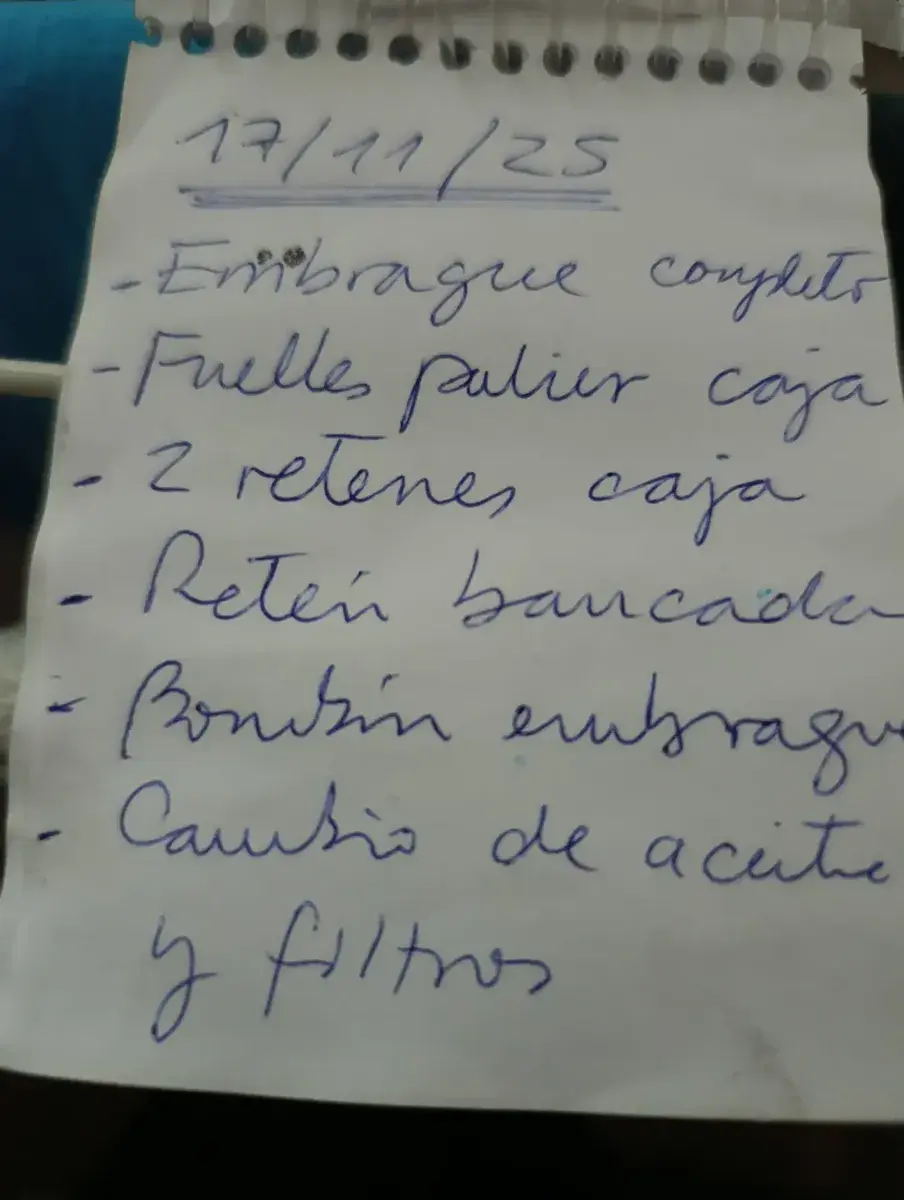 17/11/25
- Embrague completo
- Fuelles palier caja
- 2 retenes caja
- Retén bancada
- Bombín embrague
- Cambio de aceite
y filtros